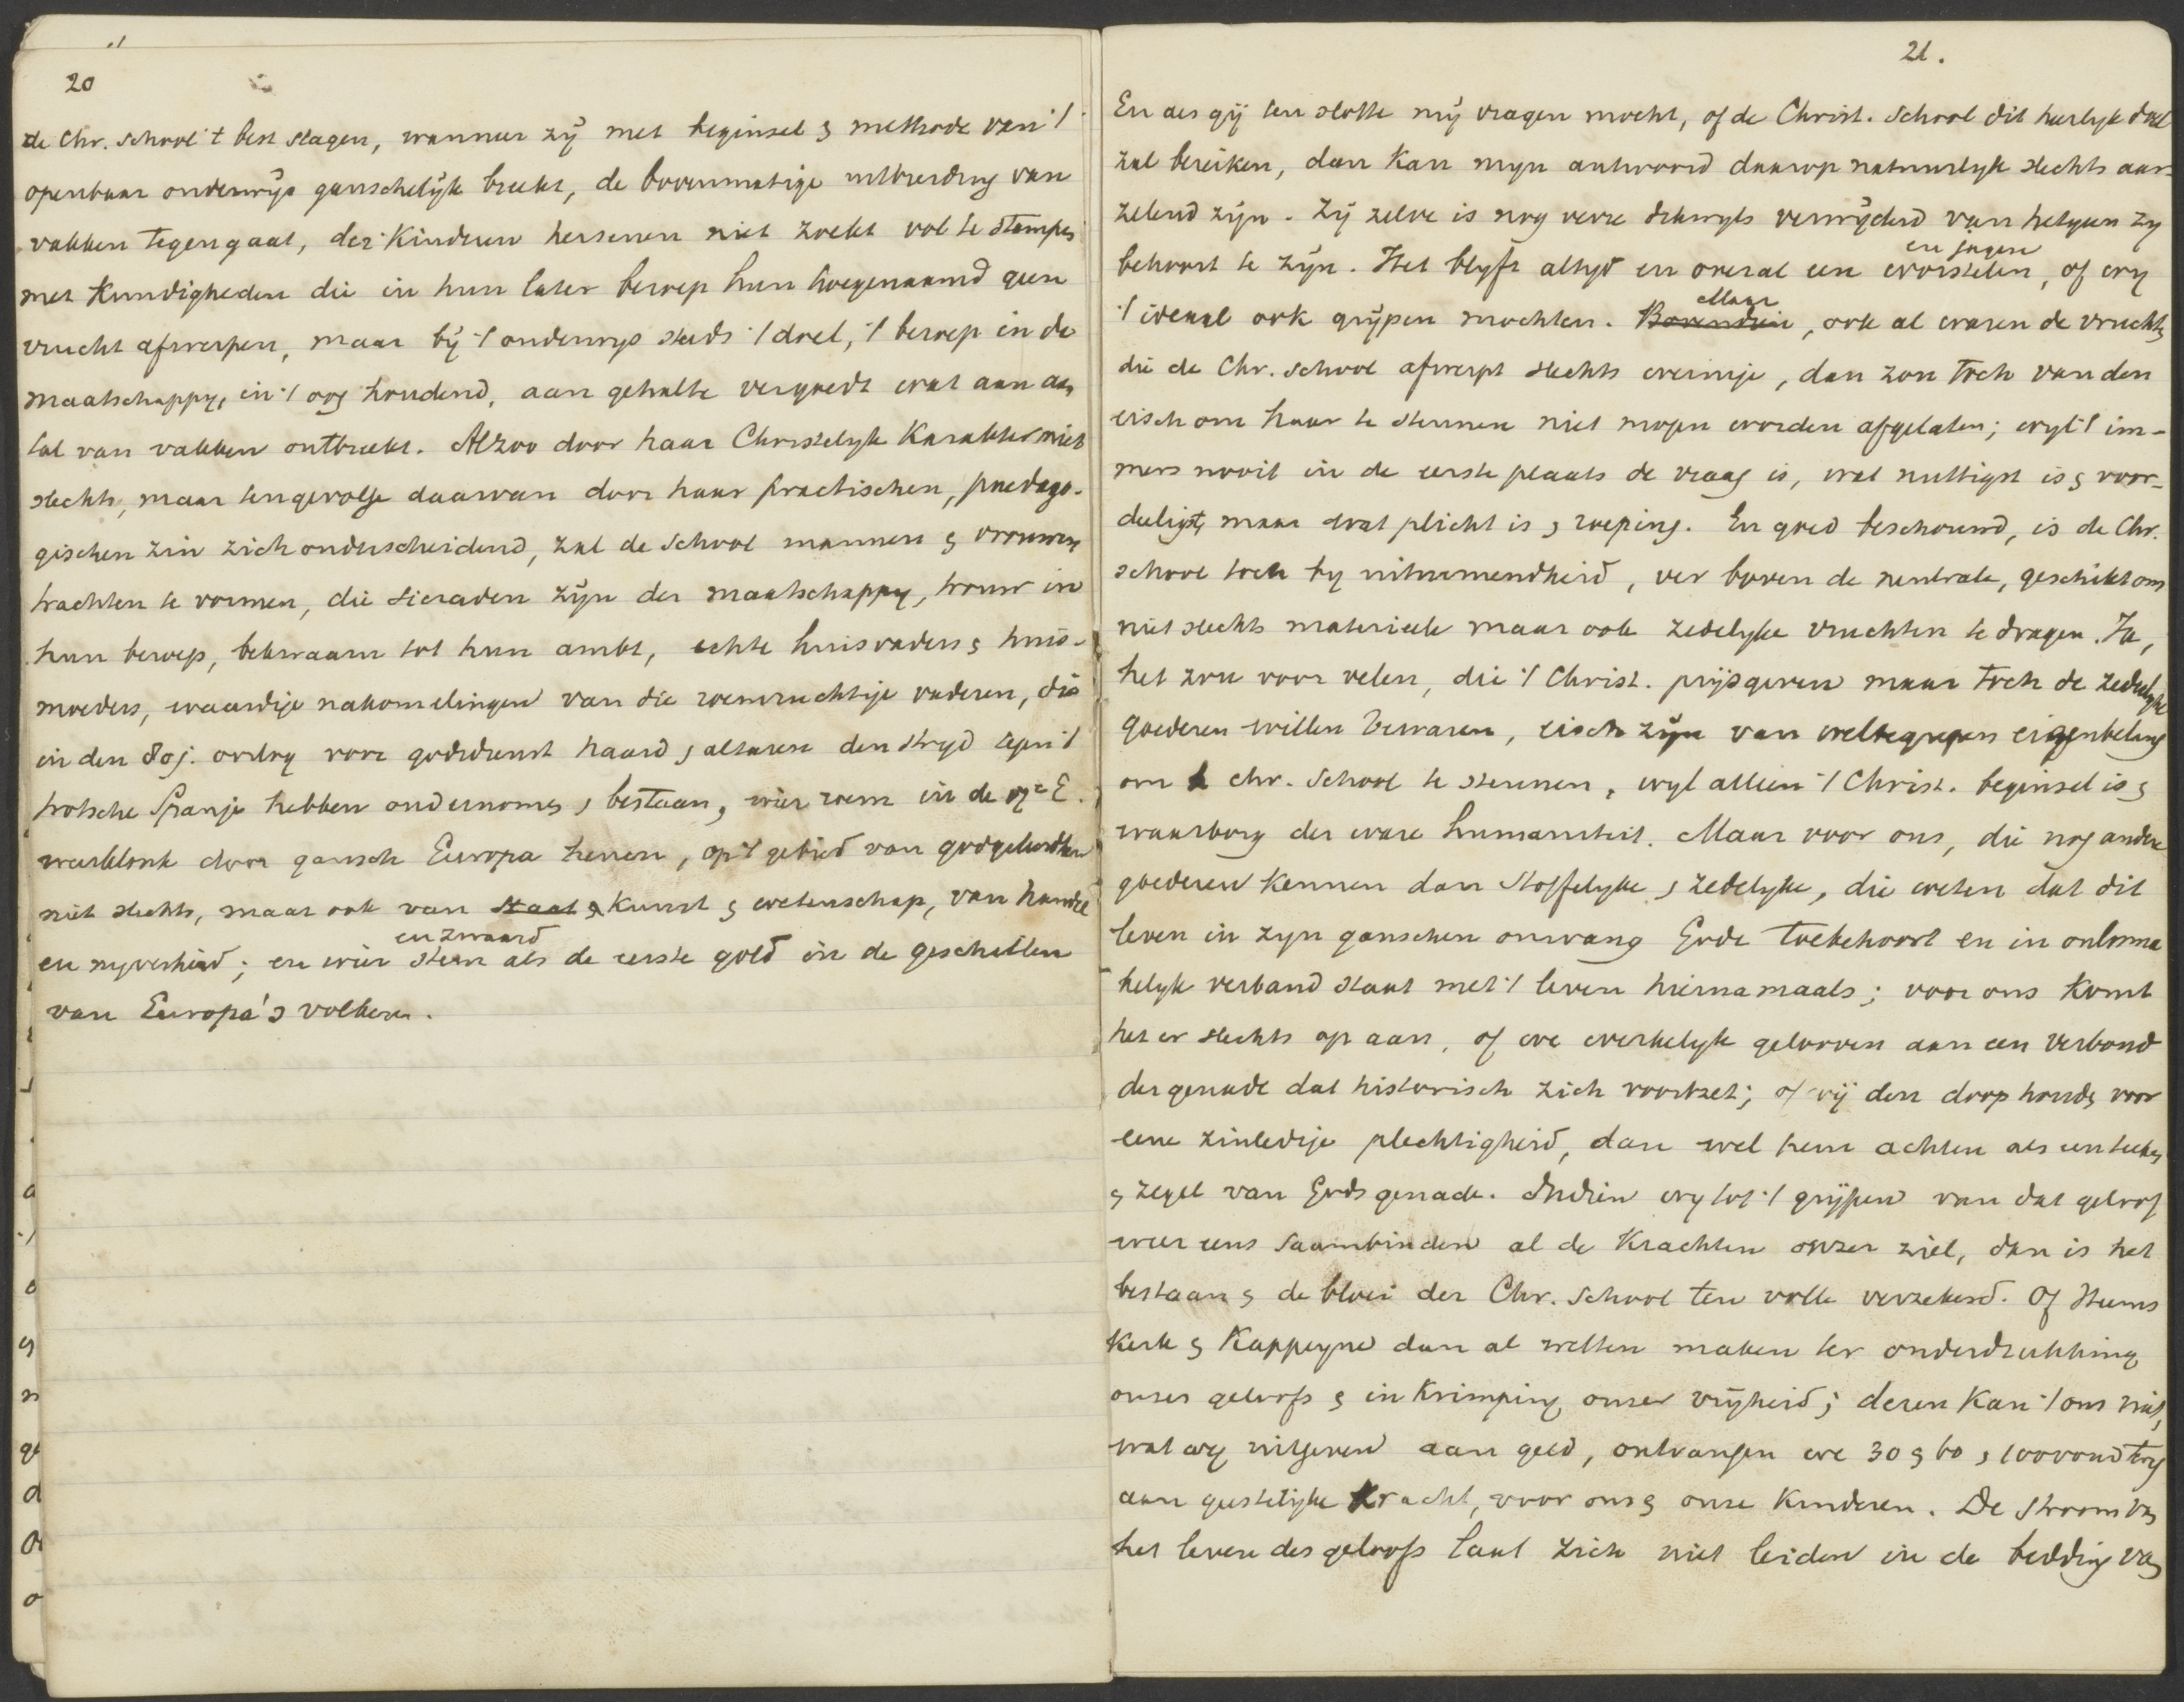 20
de Chr. school 't best slagen, wanneer zij met beginsel & methode van 't
openbaar onderwijs ganschelijk breekt, de bovenmatige uitbreiding van
vakken tegengaat, der kinderen hersenen niet zoekt vol te stampen
met kundigheden die in hun later beroep hun hoegenaamd geen
vrucht afwerpen, maar bij 't onderwys steeds 't doel, 't beroep in de
maatschappy, in 't oog houdend, aan gehalte vergoedt wat aan aan
tal van vakken ontbreekt. Alzoo door haar Christelyk karakter niet
slechts, maar tengevolge daarvan door haar practischen, paedago-
gischen zin zich onderscheidend, zal de school mannen & vrouwen
trachten te vormen, die sieraden zijn der maatschappy, trouw in
hun beroep, bekwaam tot hun ambt, echte huisvaders & huis-
moeders, waardige nakomelingen van die roemruchtige vaderen, die
in den 80j. oorlog voor godsdienst haard & altaren den strijd tegen 't
trotsche Spanje hebben ondernomen & bestaan, wier roem in de 17e E.
weerklonk door gansch Europa henen, op 't gebied van godgeleerdheid
niet slechts, maar ook van staat & kunst & wetenschap, van handel
en zwaard
en nyverheid; en wier stem als de eerste gold in de geschillen
van Europa's volken.
21.
En als gij ten slotte mij vragen mocht, of de Christ. school dit heerlyk doel
zal bereiken, dan kan myn antwoord daarop natuurlyk slechts aar-
zelend zijn. Zij zelve is nog verre dikwyls verwijderd van hetgeen zy
en jagen
behoort te zijn. Het blyft altyd en overal een worstelen, of wy
Maar
't ideaal ook grijpen mochten. Bovendien, ook al waren de vruchten
die de Chr. school afwerpt slechts weinige, dan zou toch van den
eisch om haar te steunen niet mogen worden afgelaten; wyl 't im-
mers nooit in de eerste plaats de vraag is, wat nuttigst is & voor-
deeligst, maar wat plicht is & roeping. En goed beschouwd, is de Chr.
school toch by uitnemendheid, ver boven de neutrale, geschikt om
niet slechts materieele maar ook zedelyke vruchten te dragen. Ja,
het zou voor velen, die 't Christ. prijsgeven maar toch de zedelyke
goederen willen bewaren, eisch zijn van welbegrepen eigenbelang
om de chr. School te steunen, wyl alleen 't Christ. beginsel is &
waarborg der ware humaniteit. Maar voor ons, die nog andere
goederen kennen dan stoffelyke & zedelyke, die weten dat dit
leven in zyn ganschen omvang Gode toebehoort en in onlosma
kelyk verband staat met 't leven hiernamaals; voor ons komt
het er slechts op aan, of we werkelyk gelooven aan een verbond
der genade dat historisch zich voortzet; of wij den doop houden voor
eene zinledige plechtigheid, dan wel hem achten als een teeken
& zegel van Gods genade. Indien wy tot 't grijpen van dat geloof
weer eens saambinden al de krachten onzer ziel, dan is het
bestaan & de bloei der Chr. School ten volle verzekerd. Of Heems
kerk & Kappeyne dan al wetten maken ter onderdrukking
onzes geloofs & inkrimping onzer vrijheid; deren kan 't ons niet,
wat wy uitgeven aan geld, ontvangen we 30 & 60 & 100voud terug
aan geestelijke kracht, voor ons & onze kinderen. De stroom van
het leven des geloofs laat zich niet leiden in de bedding van